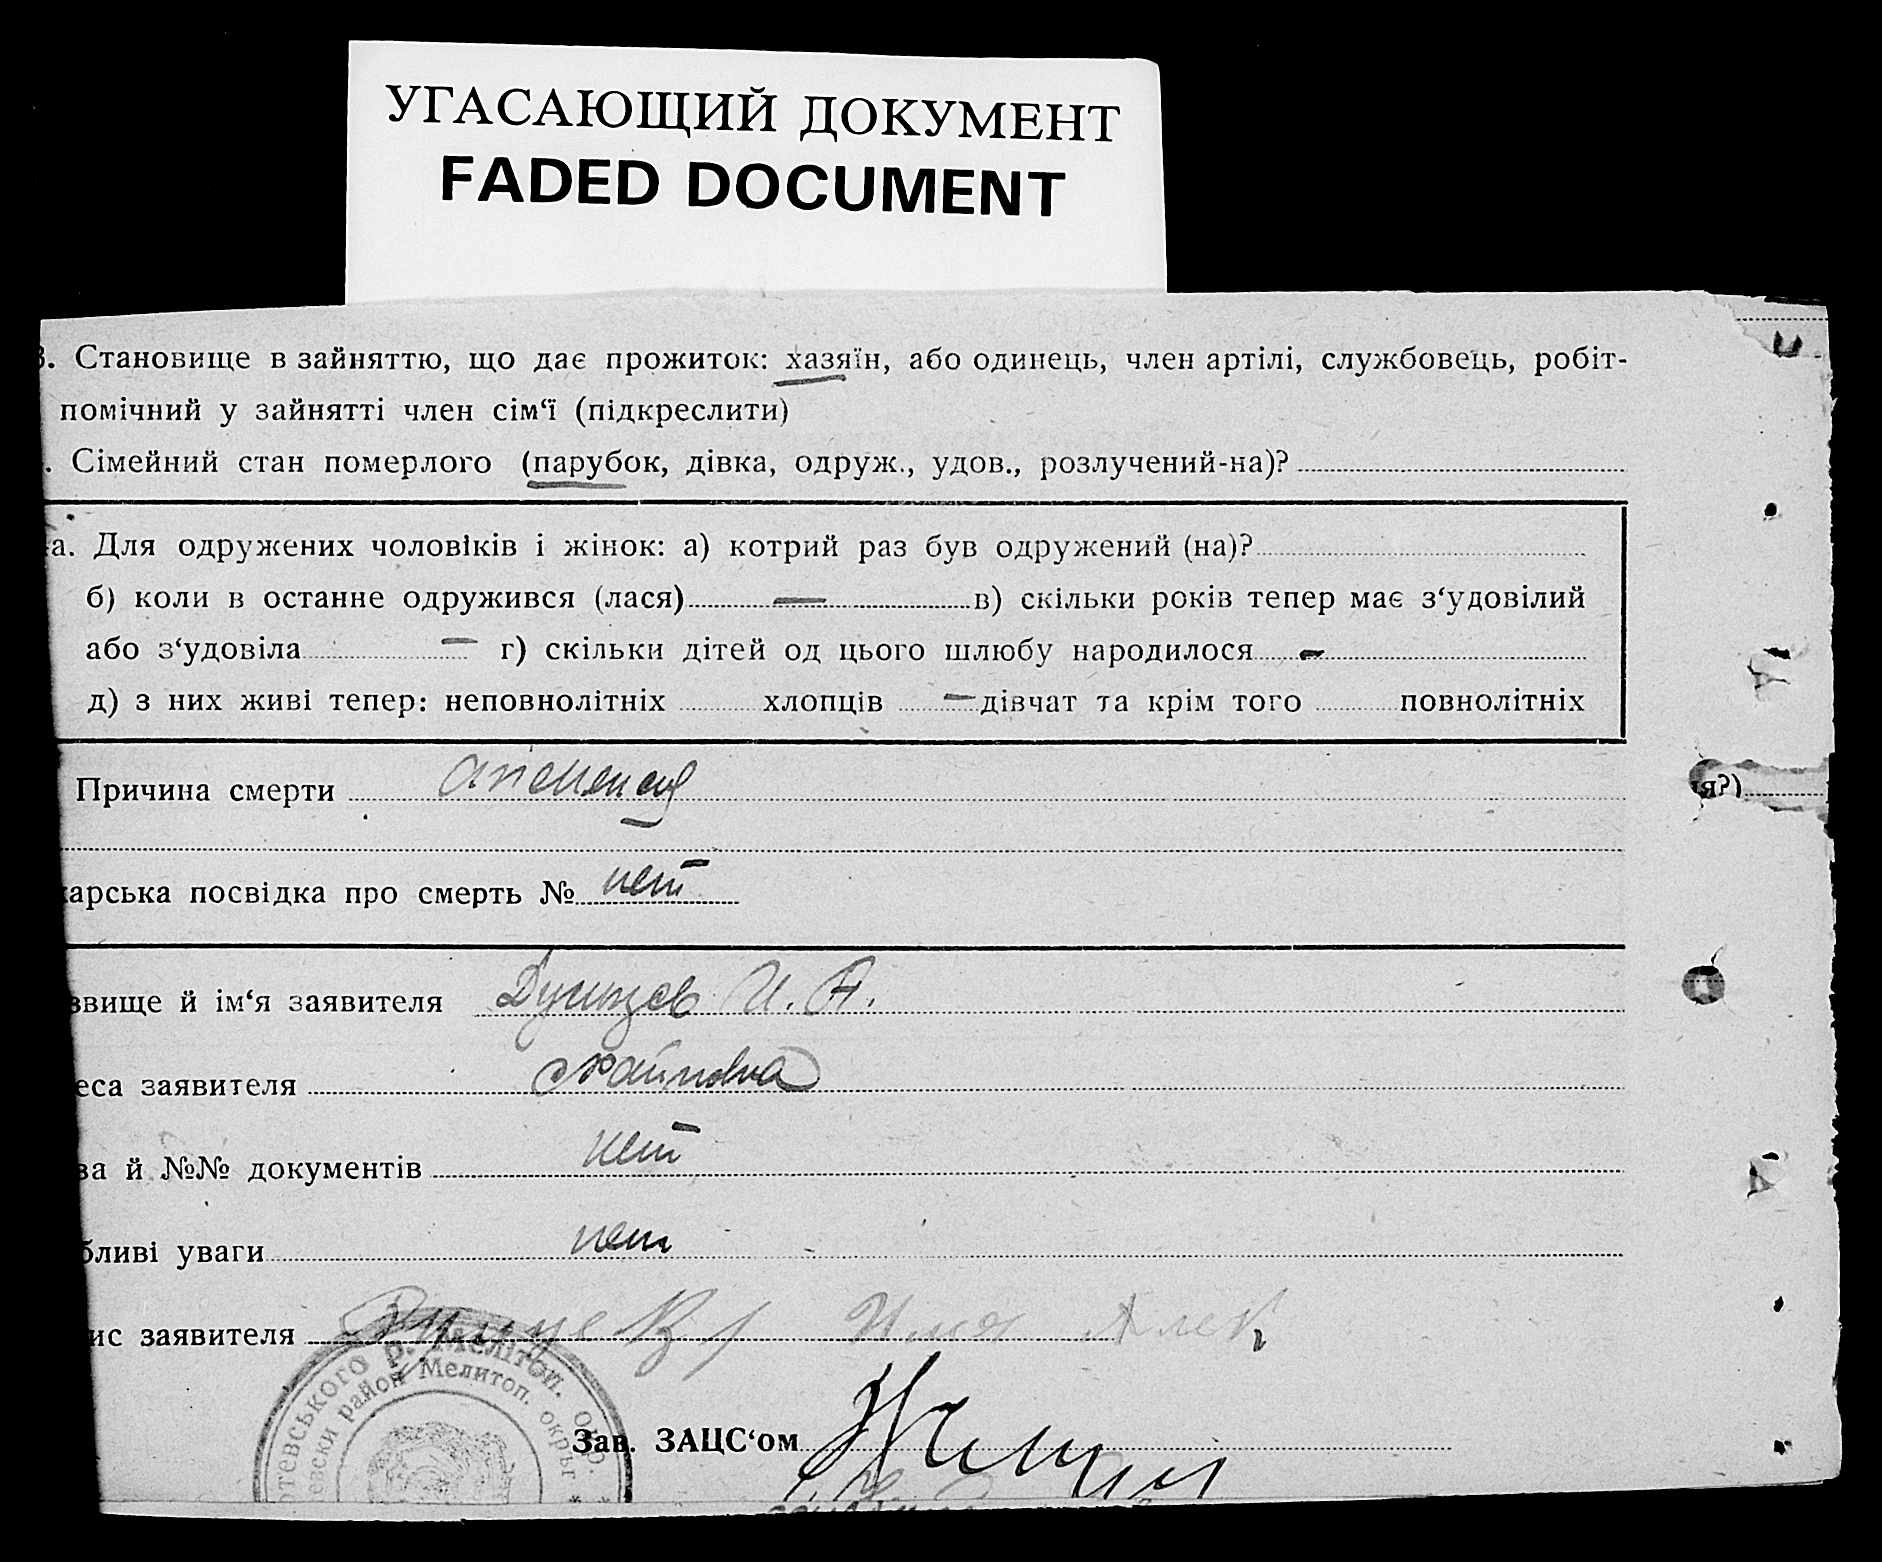 УГАСАЮЩИЙ ДОКУМЕНТ
FADED DOCUMENT
3. Становище в зайняттю, що дає прожиток: хазяїн, або одинець, член артілі, службовець, робіт-
помічний у зайнятті член сім‘ї (підкреслити)
. Сімейний стан померлого (парубок, дівка, одруж., удов., розлучений-на)?
а. Для одружених чоловіків і жінок: а) котрий раз був одружений (на)?
б) коли в останнє одружився (лася) — в) скільки років тепер має з‘удовілий
або з‘удовіла — г) скільки дітей од цього шлюбу народилося -
д) з них живі тепер: неповнолітніх хлопців — дівчат та крім того повнолітніх
Причина смерти
я?)
карська посвідка про смерть № нет
звище й ім‘я заявителя И. А.
еса заявителя
ва й №№ документів нет
бливі уваги нет
ис заявителя Илья Алек
отевського р. Меліtoп. окр.
евски район Мелитоп. округ
Зав. ЗАЦС‘ом